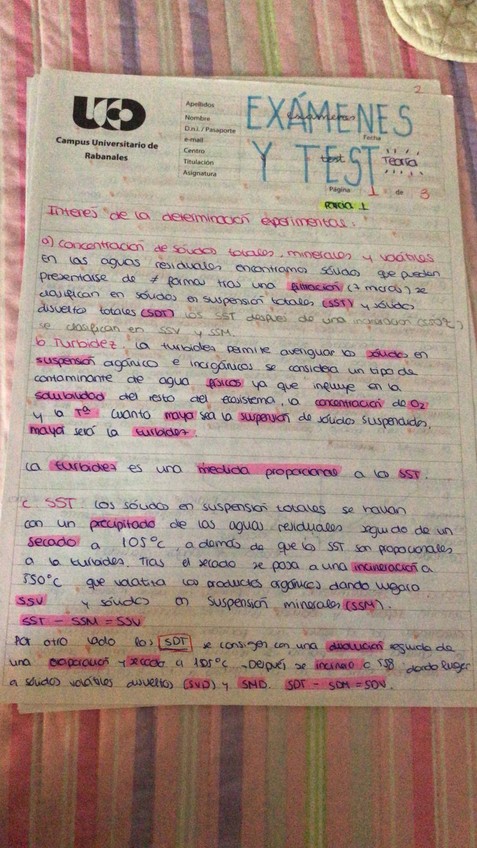 2
UCO
Campus Universitario de
Rabanales
Apellidos
Nombre
D.n.i. / Pasaporte
e-mail
Centro
Titulación
Asignatura
EXÁMENES
exámenes
Fecha
Y TEST
test
Teoría
Página 1 de 3
Parcial 1
Interés de la determinación experimental:
a) Concentración de sólidos totales, minerales y volátiles
En las aguas residuales encontramos sólidos que pueden
presentarse de ≠ formas tras una filtración se
clasifican en sólidos en suspensión totales (SST) y sólidos
disueltos totales (SDT) los SST después de una incineración (550ºC)
se clasifican en SSV y SSM.
b Turbidez, la turbidez permite averiguar los sólidos en
suspensión orgánico e inorgánicos se considera un tipo de
contaminante de agua físicos ya que influye en la
salubridad del resto del ecosistema, la concentración de O2
y la Tª cuanto mayor sea la suspensión de sólidos suspendidos,
mayor será la turbidez.
La turbidez es una medida proporcional a los SST.
c SST Los sólidos en suspensión totales se hallan
con un precipitado de las aguas residuales seguido de un
secado a 105ºC además de que los SST son proporcionales
a la turbidez. Tras el secado se pasa a una incineración a
550ºC que volatiliza los productos orgánicos dando lugar a
SSV y sólidos en suspensión minerales (SSM).
SST - SSM = SSV
Por otro lado los SDT se consiguen con una seguida de
una evaporación y secado a 105ºC. Después se incinera dando lugar
a sólidos volátiles disueltos (SVD) y SMD. SDT - SDM = SDV.